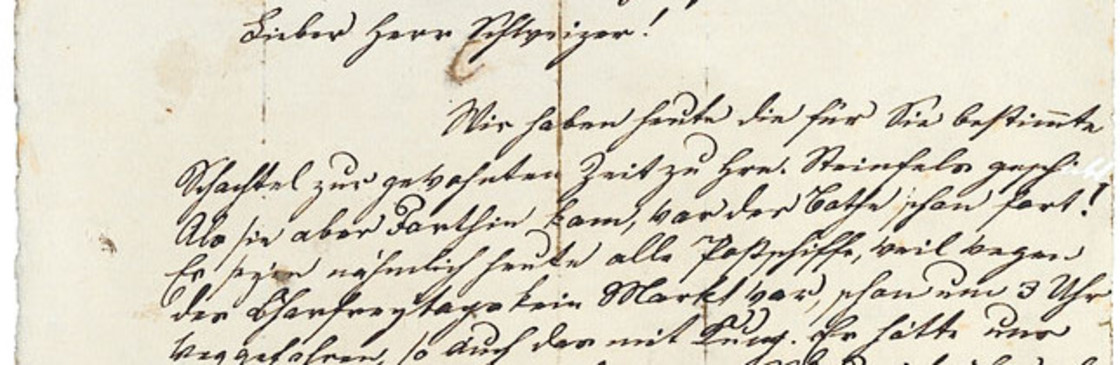 Lieber Herr Schweizer!
Wir haben heute die für Sie bestimmte
Schachtel zur gewohnten Zeit zu Hrn. Steinfels geschickt
Als sie aber Dorthin kam, war der Bothe schon fort!
Es seyen nähmlich heute alle Postschiffe, weil wegen
des Charfreytags kein Markt war, schon um 3 Uhr
weggefahren, so auch das mit Kung. Er hätte uns